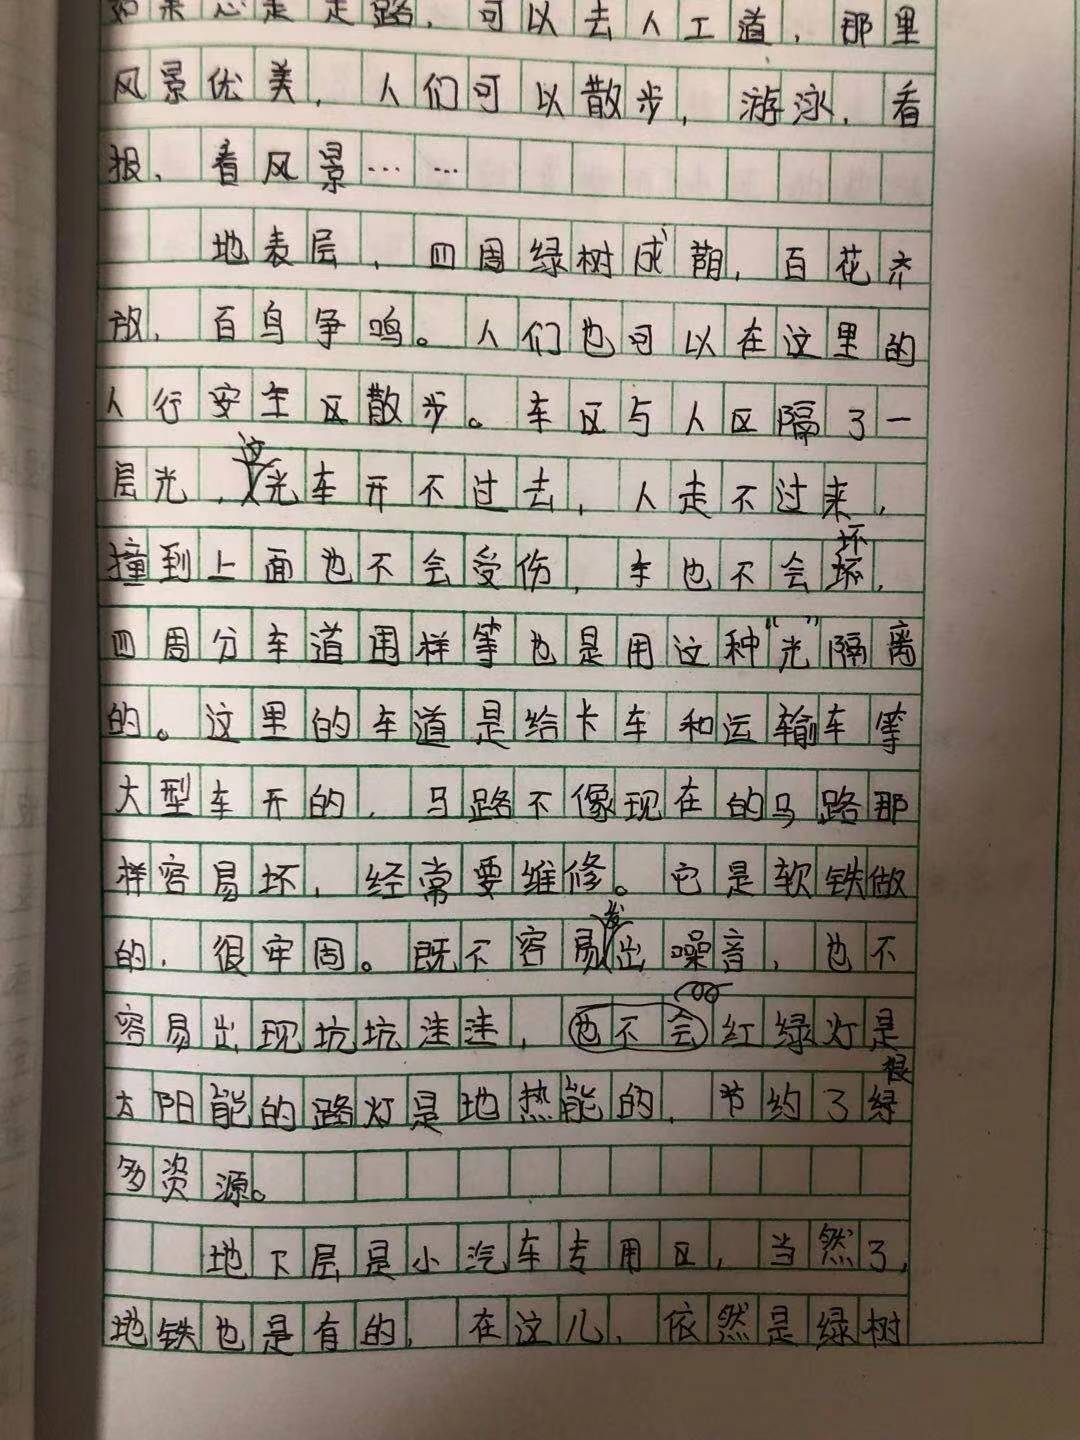 如果想走走路，可以去人工道，那里
风景优美，人们可以散步，游泳，看
报，看风景……
地表层，四周绿树成荫，百花齐
放，百鸟争鸣。人们也可以在这里的
人行安全区散步。车区与人区隔了一
层光，这光车开不过去，人走不过来，
撞到上面也不会受伤，车也不会坏，
四周分车道围样等也是用这种“光”隔离
的。这里的车道是给卡车和运输车等
大型车开的，马路不像现在的马路那
样容易坏，经常要维修。它是软铁做
的，很牢固。既不容易发出噪音，也不
容易出现坑坑洼洼，也不会红绿灯是
太阳能的路灯是地热能的，节约了很
多资源。
地下层是小汽车专用区，当然了，
地铁也是有的，在这儿，依然是绿树